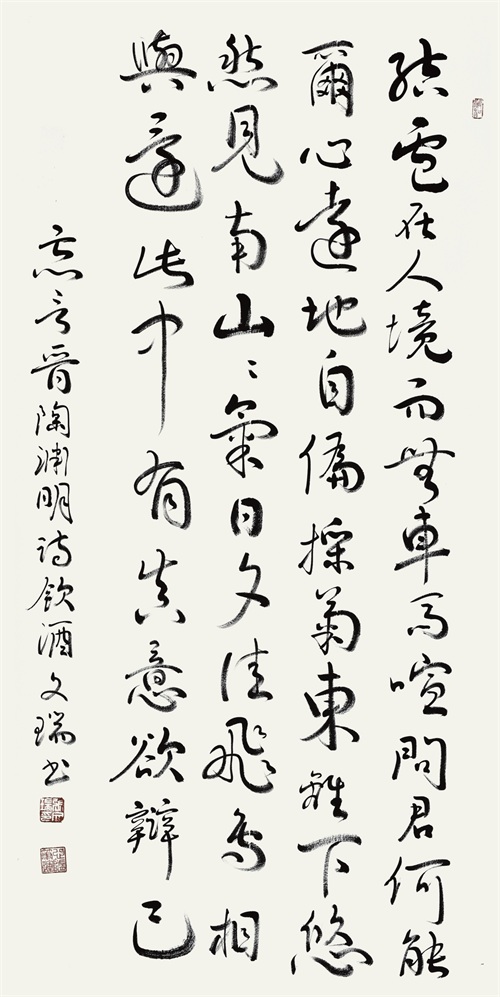 結廬在人境而無車馬喧問君何能
爾心遠地自偏採菊東離下悠
然見南山〻氣日夕佳飛鳥相
與還此中有真意欲辯已
忘言晉陶淵明詩飲酒文瑞書